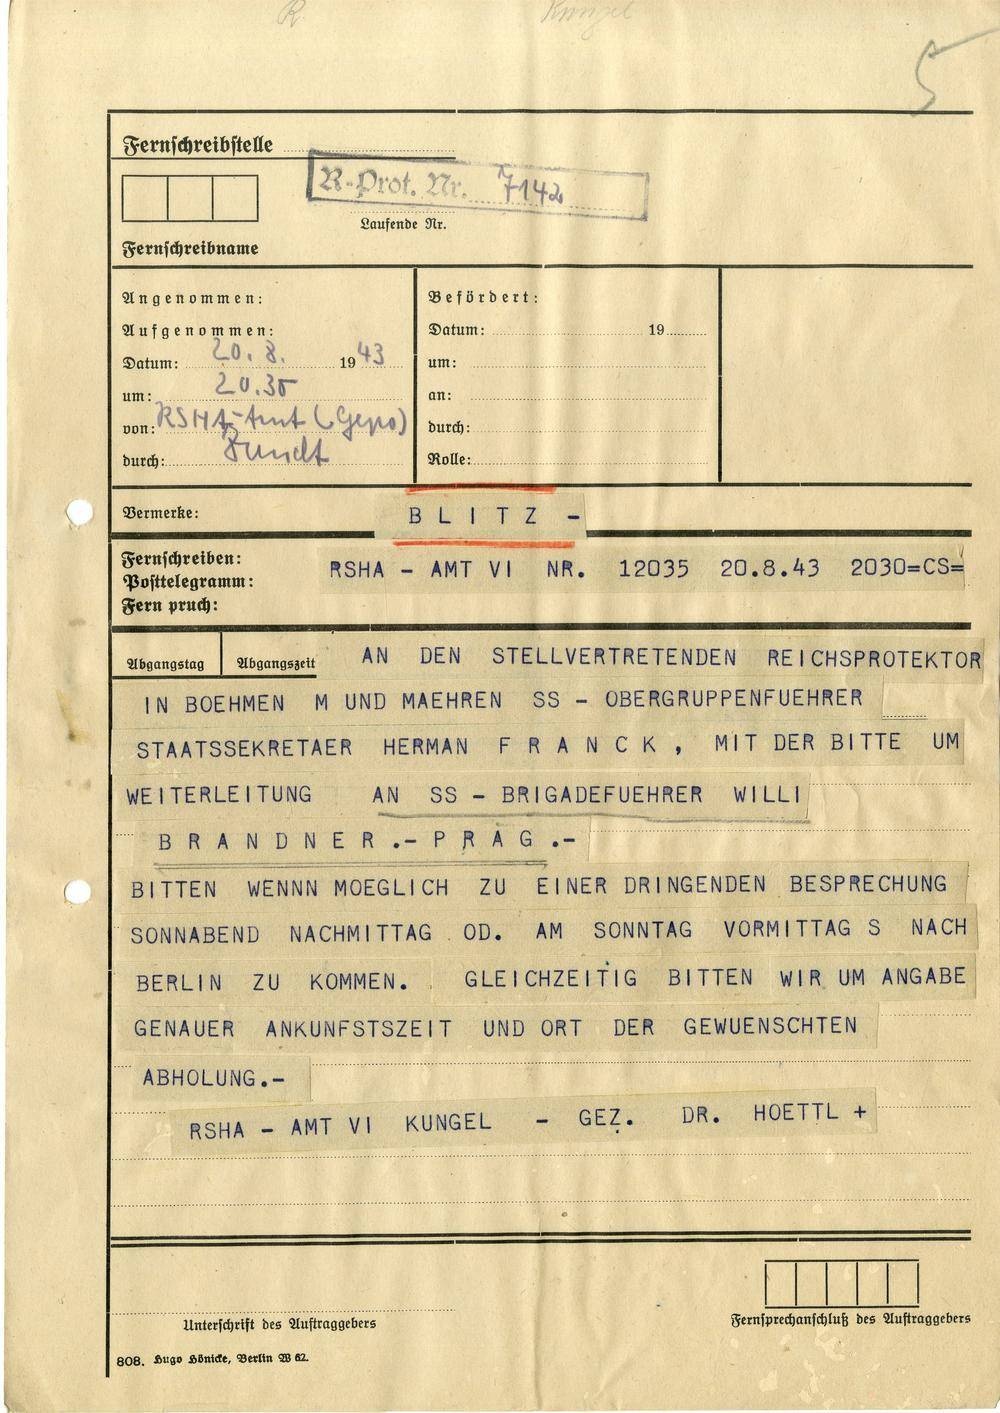 R.
Kungel
5
Fernschreibstelle
R-Prot. Nr. 7142
Laufende Nr.
Fernschreibname
Angenommen:
Aufgenommen:
Datum: 20. 8. 1943
um: 20.35
von: RSHA-Amt (Gepo)
durch:
Befördert:
Datum: 19
um:
an:
durch:
Rolle:
Vermerke: BLITZ –
Fernschreiben:
Posttelegramm:
Fern pruch:
RSHA – AMT VI NR. 12035 20.8.43 2030=CS=
Abgangstag Abgangszeit
AN DEN STELLVERTRETENDEN REICHSPROTEKTOR
IN BOEHMEN M UND MAEHREN SS – OBERGRUPPENFUEHRER
STAATSSEKRETAER HERMAN F R A N C K , MIT DER BITTE UM
WEITERLEITUNG AN SS – BRIGADEFUEHRER WILLI
B R A N D N E R .– P R A G .–
BITTEN WENNN MOEGLICH ZU EINER DRINGENDEN BESPRECHUNG
SONNABEND NACHMITTAG OD. AM SONNTAG VORMITTAG S NACH
BERLIN ZU KOMMEN. GLEICHZEITIG BITTEN WIR UM ANGABE
GENAUER ANKUNFSTSZEIT UND ORT DER GEWUENSCHTEN
ABHOLUNG.–
RSHA – AMT VI KUNGEL – GEZ. DR. HOETTL +
Unterschrift des Auftraggebers
Fernsprechanschluß des Auftraggebers
808. Hugo Hönicke, Berlin W 62.